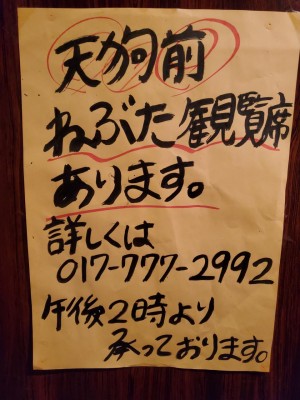 天狗前
ねぶた観覧席
あります。
詳しくは
017-777-2992
午後2時より
承っております。